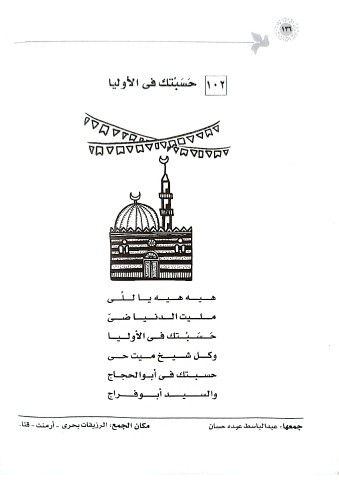 ١٣٦
١٠٢ حَسَبْتك فى الأوليا
هيه هيه يا للُى
مليت الدنيا ضىّ
حَسَبْتك فى الأوليا
وكل شيخ ميت حى
حسبتك فى أبو الحجاج
والسيد أبو فراج
جمعها: عبدالباسط عبده حسان
مكان الجمع: الرزيقات بحرى - أرمنت - قنا.